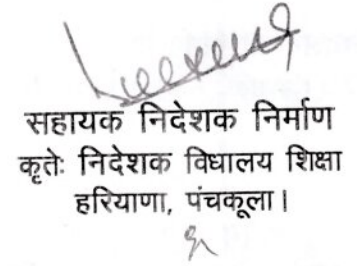 सहायक निदेशक निर्माण
कृतेः निदेशक विधालय शिक्षा
हरियाणा, पंचकूला।